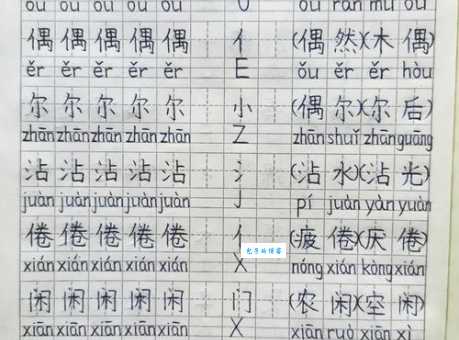 ǒu ǒu ǒu ǒu ǒu O ǒu rán mù ǒu
偶 偶 偶 偶 偶 亻 (偶 然)(木 偶)
ěr ěr ěr ěr ěr E ǒu ěr ěr hòu
尔 尔 尔 尔 尔 小 (偶 尔)(尔 后)
zhān zhān zhān zhān zhān Z zhān shuǐ zhān guāng
沾 沾 沾 沾 沾 氵 (沾 水)(沾 光)
juàn juàn juàn juàn juàn J pí juàn yàn yuàn
倦 倦 倦 倦 倦 亻 (疲 倦)(厌 倦)
xián xián xián xián xián X nóng xián kòng xián
闲 闲 闲 闲 闲 门 (农 闲)(空 闲)
xiān xiān xiān xiān xiān X xiān ruò xiān xì